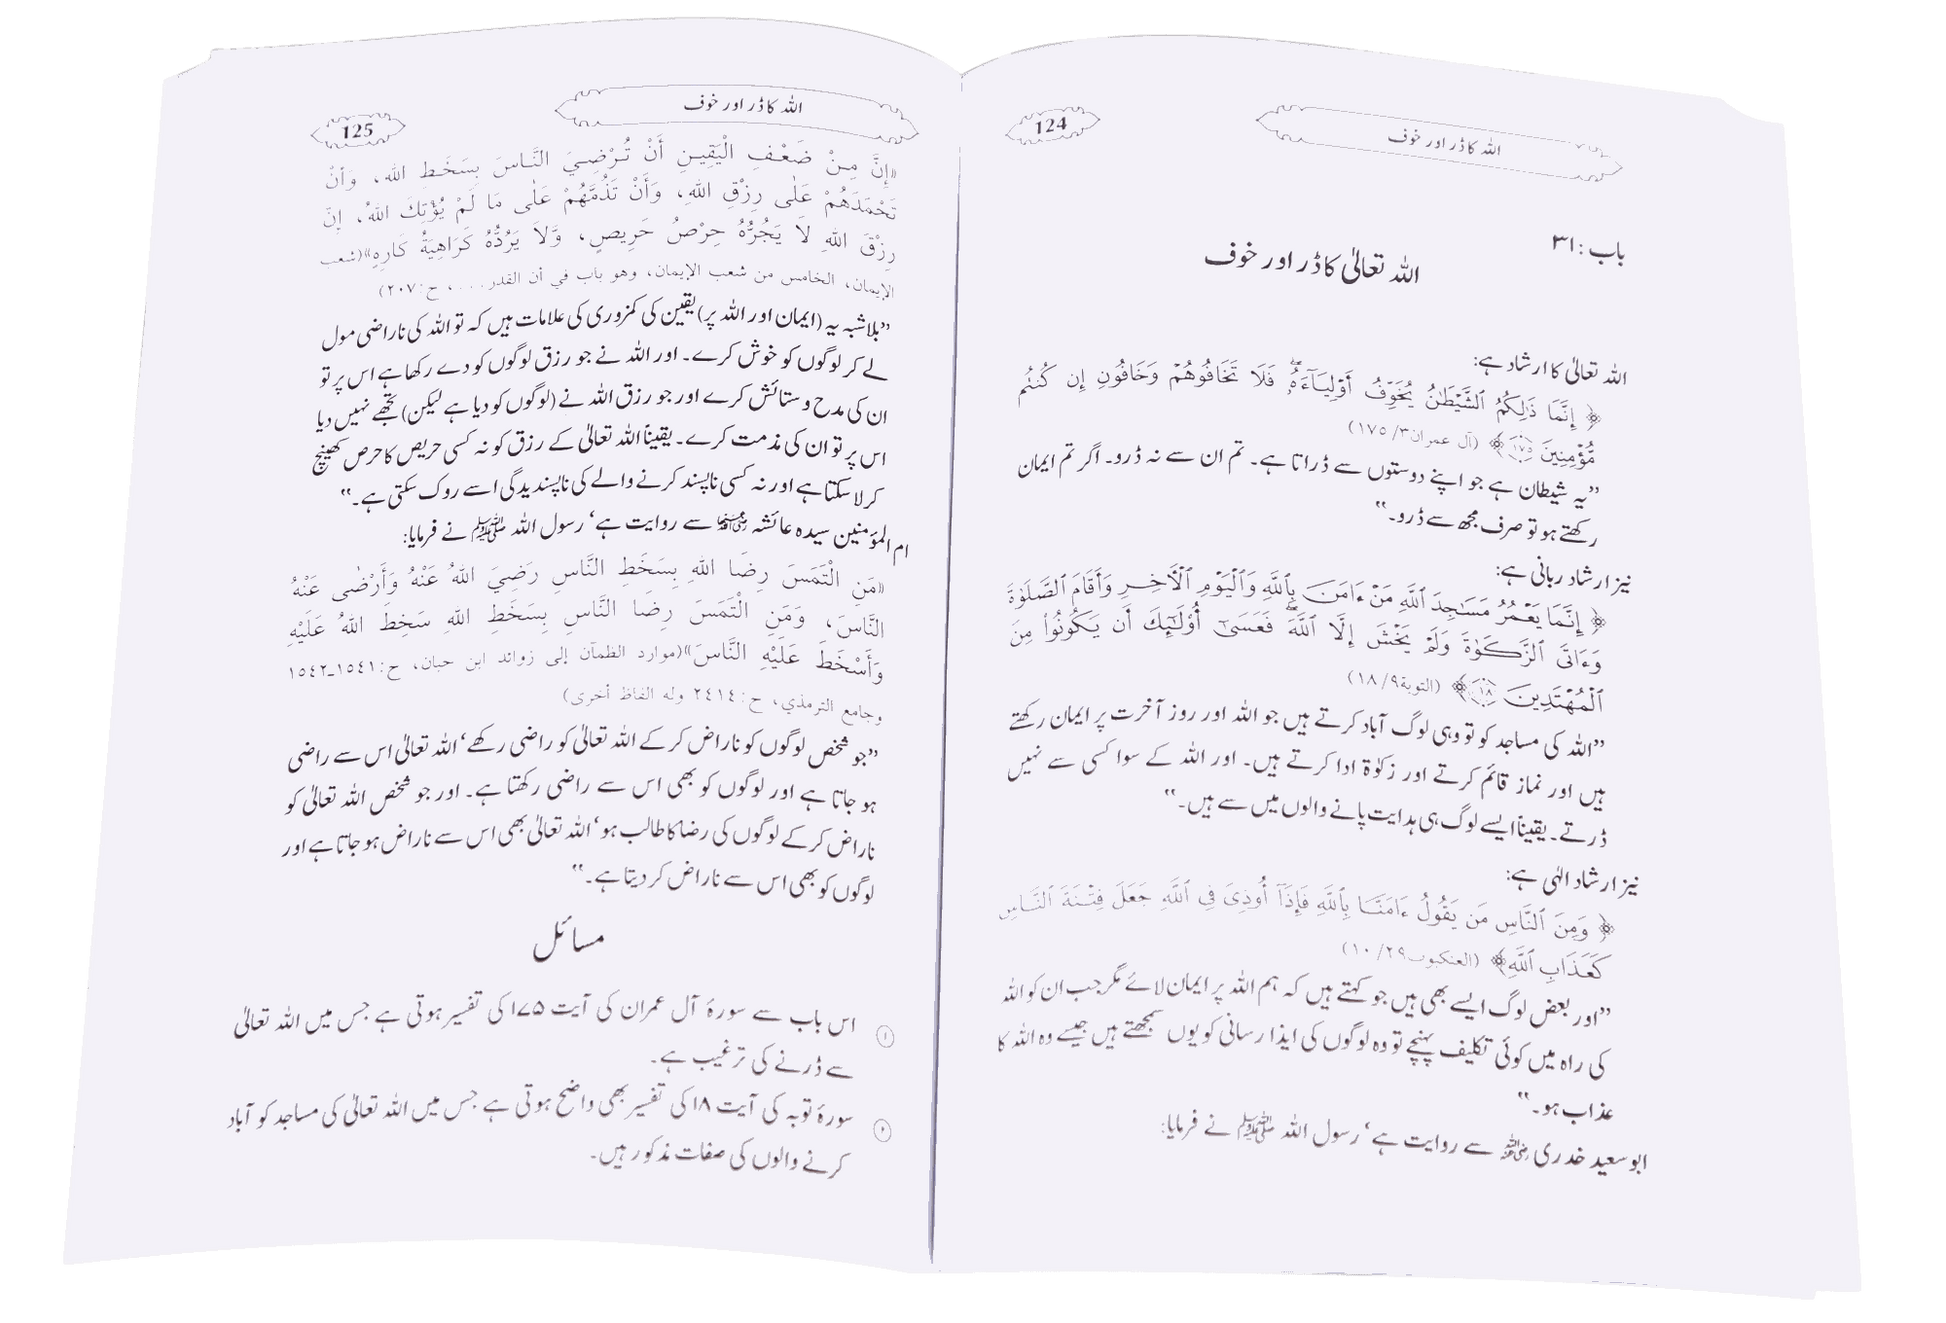 اللہ کا ڈر اور خوف
124
باب : ۳۱
اللہ تعالیٰ کا ڈر اور خوف
اللہ تعالیٰ کا ارشاد ہے:
﴿ إِنَّمَا ذَٰلِكُمُ ٱلشَّيْطَٰنُ يُخَوِّفُ أَوْلِيَآءَهُۥۖ فَلَا تَخَافُوهُمْ وَخَافُونِ إِن كُنتُم
مُّؤْمِنِينَ ۝١٧٥﴾ (آل عمران۳/ ۱۷۵)
”یہ شیطان ہے جو اپنے دوستوں سے ڈراتا ہے۔ تم ان سے نہ ڈرو۔ اگر تم ایمان
رکھتے ہو تو صرف مجھ سے ڈرو۔“
نیز ارشاد ربانی ہے:
﴿ إِنَّمَا يَعْمُرُ مَسَٰجِدَ ٱللَّهِ مَنْ ءَامَنَ بِٱللَّهِ وَٱلْيَوْمِ ٱلْأَخِرِ وَأَقَامَ ٱلصَّلَوٰةَ
وَءَاتَى ٱلزَّكَوٰةَ وَلَمْ يَخْشَ إِلَّا ٱللَّهَۖ فَعَسَىٰٓ أُوْلَٰٓئِكَ أَن يَكُونُوا۟ مِنَ
ٱلْمُهْتَدِينَ ۝١٨﴾ (التوبة۹/ ۱۸)
”اللہ کی مساجد کو تو وہی لوگ آباد کرتے ہیں جو اللہ اور روز آخرت پر ایمان رکھتے
ہیں اور نماز قائم کرتے اور زکوٰۃ ادا کرتے ہیں۔ اور اللہ کے سوا کسی سے نہیں
ڈرتے۔ یقیناً ایسے لوگ ہی ہدایت پانے والوں میں سے ہیں۔“
نیز ارشاد الٰہی ہے:
﴿ وَمِنَ ٱلنَّاسِ مَن يَقُولُ ءَامَنَّا بِٱللَّهِ فَإِذَآ أُوذِيَ فِى ٱللَّهِ جَعَلَ فِتْنَةَ ٱلنَّاسِ
كَعَذَابِ ٱللَّهِ﴾ (العنكبوت۲۹/ ۱۰)
”اور بعض لوگ ایسے بھی ہیں جو کہتے ہیں کہ ہم اللہ پر ایمان لائے مگر جب ان کو اللہ
کی راہ میں کوئی تکلیف پہنچے تو وہ لوگوں کی ایذا رسانی کو یوں سمجھتے ہیں جیسے وہ اللہ کا
عذاب ہو۔“
ابو سعید خدری رضی اللہ عنہ سے روایت ہے‘ رسول اللہ ﷺ نے فرمایا:
اللہ کا ڈر اور خوف
125
«إِنَّ مِنْ ضَعْفِ الْيَقِينِ أَنْ تُرْضِيَ النَّاسَ بِسَخَطِ اللهِ، وَأَنْ
تَحْمَدَهُمْ عَلٰى رِزْقِ اللهِ، وَأَنْ تَذُمَّهُمْ عَلٰى مَا لَمْ يُؤْتِكَ اللهُ، إِنَّ
رِزْقَ اللهِ لاَ يَجُرُّهُ حِرْصُ حَرِيصٍ، وَّلاَ يَرُدُّهُ كَرَاهِيَةُ كَارِهٍ»(شعب
الإيمان، الخامس من شعب الإيمان، وهو باب في أن القدر. . . ، ح:۲۰۷)
”بلاشبہ یہ (ایمان اور اللہ پر) یقین کی کمزوری کی علامات ہیں کہ تو اللہ کی ناراضی مول
لے کر لوگوں کو خوش کرے۔ اور اللہ نے جو رزق لوگوں کو دے رکھا ہے اس پر تو
ان کی مدح و ستائش کرے اور جو رزق اللہ نے (لوگوں کو دیا ہے لیکن) تجھے نہیں دیا
اس پر تو ان کی مذمت کرے۔ یقیناً اللہ تعالیٰ کے رزق کو نہ کسی حریص کا حرص کھینچ
کر لا سکتا ہے اور نہ کسی ناپسند کرنے والے کی ناپسندیدگی اسے روک سکتی ہے۔“
ام المؤمنین سیدہ عائشہ رضی اللہ عنہا سے روایت ہے‘ رسول اللہ ﷺ نے فرمایا:
«مَنِ الْتَمَسَ رِضَا اللهِ بِسَخَطِ النَّاسِ رَضِيَ اللهُ عَنْهُ وَأَرْضٰى عَنْهُ
النَّاسَ، وَمَنِ الْتَمَسَ رِضَا النَّاسِ بِسَخَطِ اللهِ سَخِطَ اللهُ عَلَيْهِ
وَأَسْخَطَ عَلَيْهِ النَّاسَ»(موارد الظمآن إلى زوائد ابن حبان، ح:١٥٤١ـ١٥٤٢
وجامع الترمذي، ح:٢٤١٤ وله الفاظ أخرى)
”جو شخص لوگوں کو ناراض کر کے اللہ تعالیٰ کو راضی رکھے‘ اللہ تعالیٰ اس سے راضی
ہو جاتا ہے اور لوگوں کو بھی اس سے راضی رکھتا ہے۔ اور جو شخص اللہ تعالیٰ کو
ناراض کر کے لوگوں کی رضا کا طالب ہو‘ اللہ تعالیٰ بھی اس سے ناراض ہو جاتا ہے اور
لوگوں کو بھی اس سے ناراض کر دیتا ہے۔“
مسائل
① اس باب سے سورۂ آل عمران کی آیت ۱۷۵ کی تفسیر ہوتی ہے جس میں اللہ تعالیٰ
سے ڈرنے کی ترغیب ہے۔
② سورۂ توبہ کی آیت ۱۸ کی تفسیر بھی واضح ہوتی ہے جس میں اللہ تعالیٰ کی مساجد کو آباد
کرنے والوں کی صفات مذکور ہیں۔